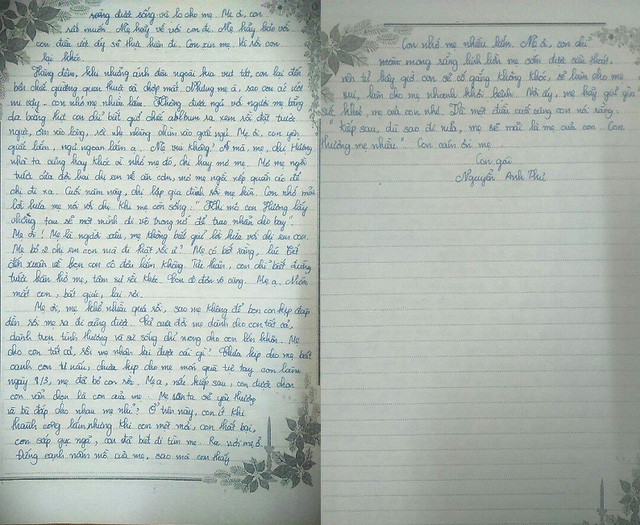 sang được sống và lo cho mẹ. Mẹ ơi, con
rất muốn. Mẹ hãy về với con đi. Mẹ hãy bảo với
con điều ước ấy sẽ thực hiện đi. Con xin mẹ. Và rồi con
lại khóc.
Hằng đêm, khi những ánh đèn ngoài kia vụt tắt, con lại đến
bên chiếc giường quen thuộc và chợp mắt. Nhưng mẹ ạ, sao con cứ ướt
mi cay. Con nhớ mẹ nhiều lắm. Không được ngủ với người mẹ bằng
da bằng thịt con chỉ biết giở chiếc album ra xem rồi đặt trước
ngực, ôm vào lòng, rồi nhẹ nhàng chìm vào giấc ngủ. Mẹ ơi, con yên
giấc lắm, ngủ ngoan lắm ạ. Mẹ vui không? Mà mẹ, chị Hương
nhà ta cũng hay khóc vì nhớ mẹ đó, chị hay mơ mẹ. Mơ mẹ ngồi
trước cửa đợi hai chị em về ăn cơm, mơ mẹ ngồi xếp quần áo để
chị đi xa. Cuối năm nay, chị lập gia đình rồi mẹ hỉn. Con nhớ mãi
lời hứa mẹ nói với chị khi mẹ còn sống: "Khi mô con Hương lấy
chồng, tau sẽ một mình đi vô trong nớ để trao nhẫn cho bay".
Mẹ ơi! Mẹ là người xấu, mẹ không biết giữ lời hứa với chị em con.
Mẹ bỏ 2 chị em con mà đi thật rồi ư? Mẹ có biết rằng, lúc Tết
đến xuân về bọn con cô đơn lắm không. Tủi thân, con chỉ biết đứng
trước bàn thờ mẹ, tâm sự rồi khóc. Con cô đơn vô cùng. Mẹ ạ. Nước
mắt con, bất giác, lại rơi.
Mẹ ơi, mẹ khổ nhiều quá rồi, sao mẹ không để bọn con kịp đáp
đền rồi mẹ ra đi cũng được. Cả cuộc đời mẹ dành cho con tất cả,
dành trọn tình thương và sự sống chỉ mong cho con lớn khôn. Mẹ
cho con tất cả, rồi mẹ nhận lại được cái gì? Chưa kịp cho mẹ bát
canh con tự nấu, chưa kịp cho mẹ món quà từ tay con làm
ngày 8/3, mẹ đã bỏ con rồi. Mẹ ạ, nếu kiếp sau, con được chọn
con vẫn chọn là con của mẹ. Mẹ con ta sẽ yêu thương
và bù đắp cho nhau mẹ nhé? Ở trên này, con ít khi
thành công lắm nhưng khi con mệt mỏi, con thất bại,
con sắp gục ngã, con đã biết đi tìm mẹ. Ra nơi mẹ ở.
Đứng cạnh nấm mồ của mẹ, sao mà con thấy
Con nhớ mẹ nhiều lắm. Mẹ ơi, con chỉ
mong mỏng sáng linh hồn mẹ sớm được cứu thoát,
nên từ bây giờ con sẽ cố gắng không khóc, sẽ làm cho mẹ
vui, làm cho mẹ nhanh khỏi bệnh. Nơi ấy, mẹ hãy giữ gìn
sức khoẻ, mẹ của con nhé. Và một điều cuối cùng con nói rằng:
"Kiếp sau, dù sao đi nữa, mẹ sẽ mãi là mẹ của con. Con
thương mẹ nhiều". Con cảm ơn mẹ.
Con gái
Nguyễn Anh Thư